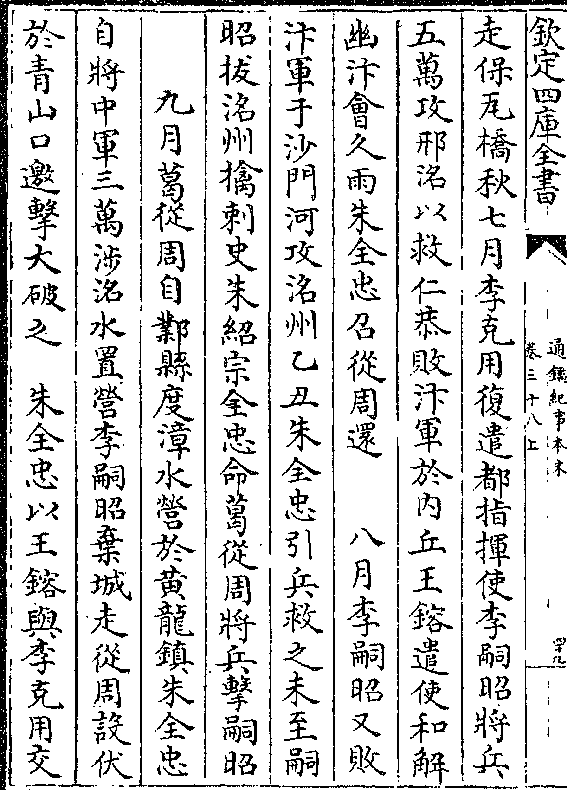 欽定四庫全書
通鑑紀事本末
卷三十八上
四十九
走保瓦橋秋七月李克用復遣都指揮使李嗣昭將兵
五萬攻邢洺以救仁恭敗汴軍於内丘王鎔遣使和解
幽汴會久雨朱全忠召從周還　八月李嗣昭又敗
汴軍于沙門河攻洺州乙丑朱全忠引兵救之未至嗣
昭拔洺州擒刺史朱紹宗全忠命葛從周將兵擊嗣昭
九月葛從周自鄴縣度漳水營於黃龍鎮朱全忠
自將中軍三萬涉洺水置營李嗣昭棄城走從周設伏
於青山口邀擊大破之　朱全忠以王鎔與李克用交